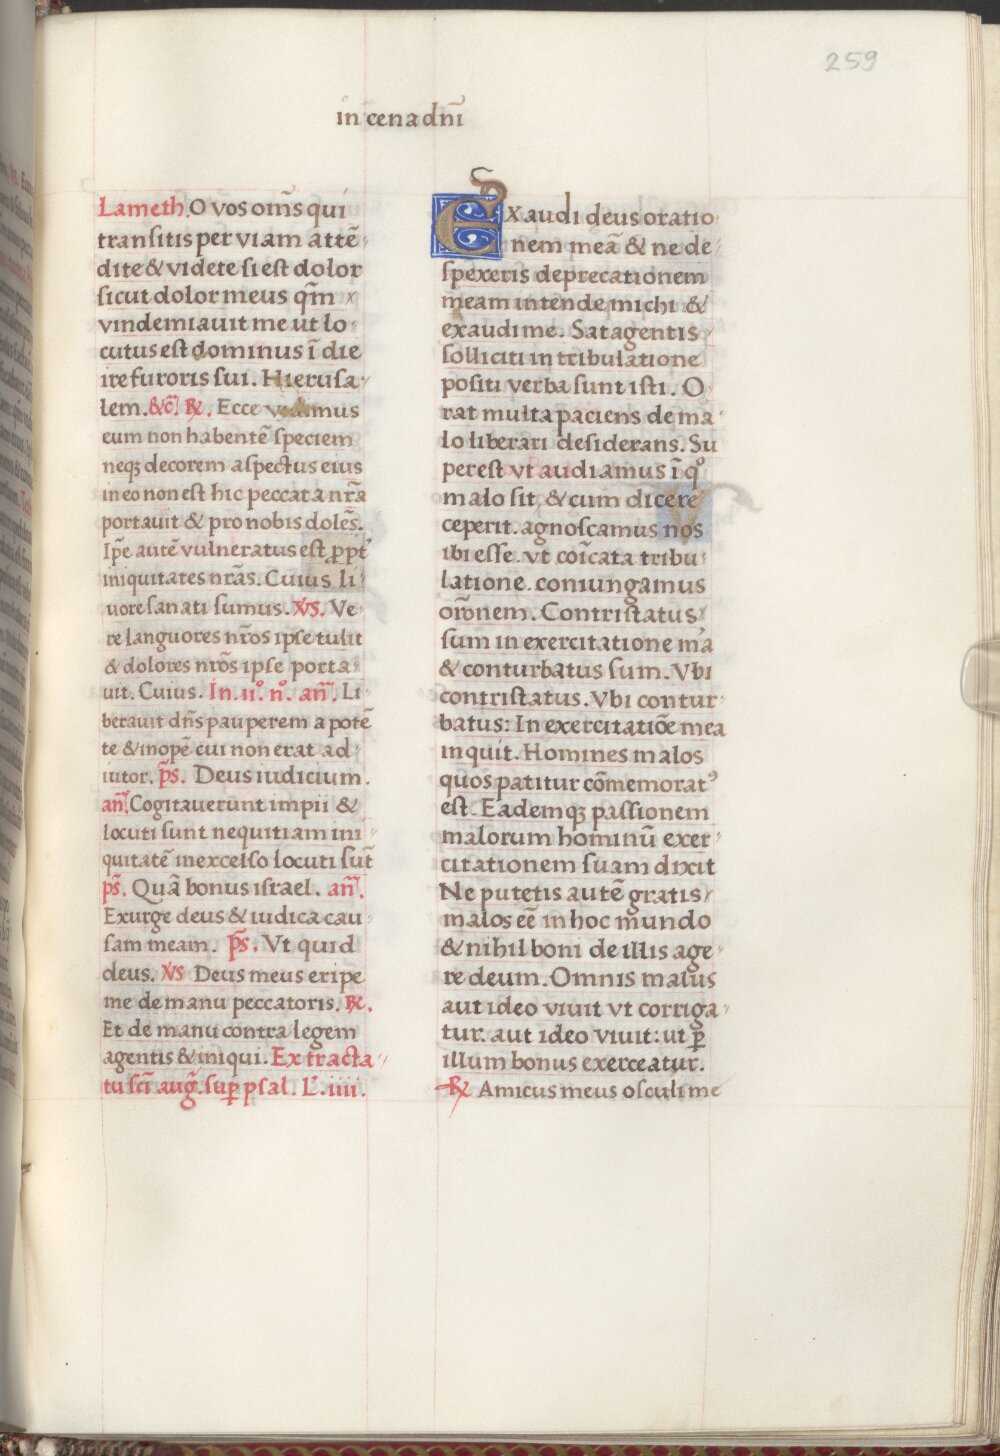 259
in cena dnī
Lameth. O vos om̄s qui
transitis per viam attē
dite & videte si est dolor
sicut dolor meus qm̄
vindemiavit me ut lo
cutus est dominus ī die
ire furoris sui. Hierusa
lem. &c̄. ℞. Ecce vidimus
eum non habentē speciem
neqȝ decorem aspectus eius
in eo non est hic peccata nr̄a
portavit & pro nobis dolēs.
Ip̄e autē vulneratus est ꝓpt᷑
iniquitates nr̄as. Cuius li
uore sanati sumus. V̄s. Ve
re languores nr̄os ipse tulit
& dolores nr̄os ipse porta
uit. Cuius. In. ii°. n°. an̄. Li
beravit dn̄s pauperem a potē
te & inopē cui non erat ad
iutor. p̄s. Deus iudicium.
an̄. Cogitaverunt impii &
locuti sunt nequitiam ini
quitatē in excelso locuti sūt
p̄s. Quā bonus israel. an̄.
Exurge deus & iudica cau
sam meam. p̄s. Vt quid
deus. V̄s Deus meus eripe
me de manu peccatoris. ℞.
Et de manu contra legem
agentis & iniqui. Ex tracta
tu sc̄i auḡ. suꝑ psal. L. iiii.
EXaudi deus oratio
nem meā & ne de
spexeris deprecationem
meam intende michi &
exaudi me. Satagentis
solliciti in tribulatione
positi verba sunt isti. O
rat multa paciens de ma
lo liberari desiderans. Su
perest vt audiamus ī qͦ
malo sit & cum dicere
ceperit. agnoscamus nos
ibi esse. vt coīcata tribu
latione. coniungamus
orōnem. Contristatus
sum in exercitatione mᵃ
& conturbatus sum. Vbi
contristatus. Vbi contur
batus: In exercitatiōe mea
inquit. Homines malos
quos patitur cōmemorat᷒
est. Eademqȝ passionem
malorum hominū exer
citationem suam dixit
Ne putetis autē gratis
malos eē in hoc mundo
& nihil boni de illis age
re deum. Omnis malus
aut ideo vivit vt corriga
tur. aut ideo vivit: ut ꝑ
illum bonus exerceatur.
℞ Amicus meus osculi me